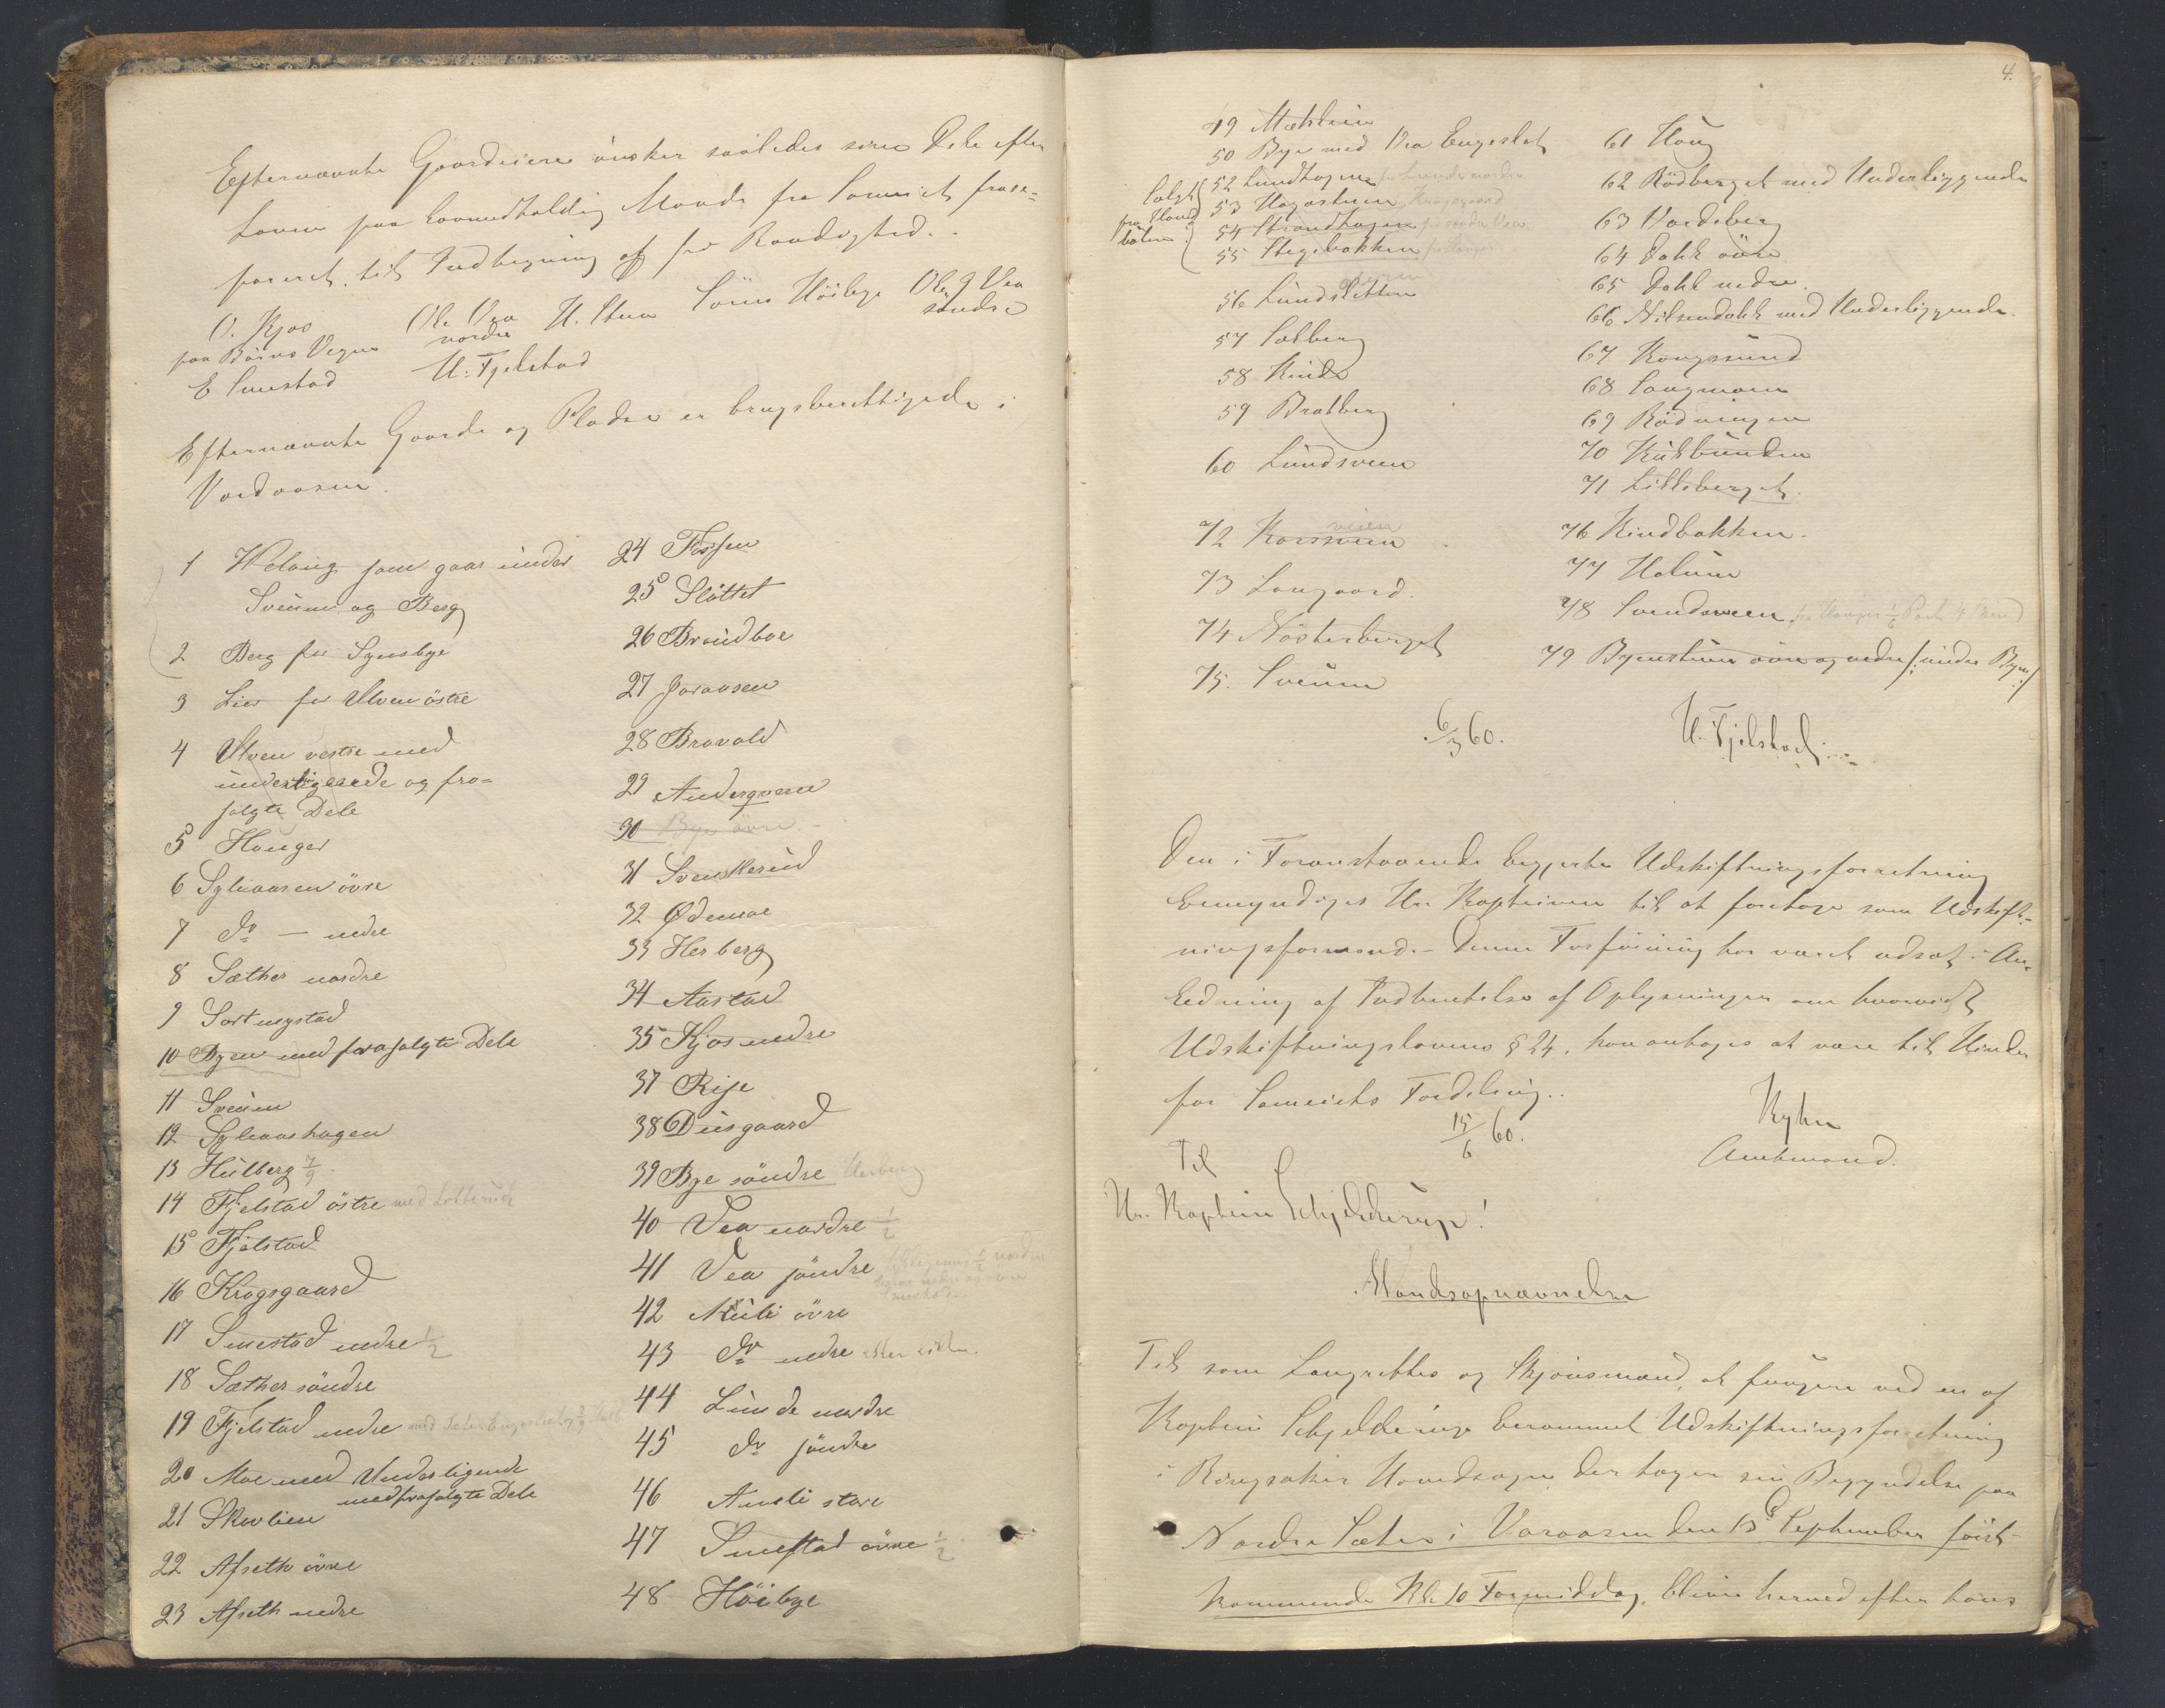 Efternævnte Gaardeiere ønsker saaledes sine Dele efter
Loven paa lovmedholdig Maade fra Sameiet frase-
pareret, til Indhegning og fri Raadighed.
O. Kjos Ole Vea H. Stein Søren Høibye Ole J Vea
paa Børns Vegne nordre søndre
E Smestad H. Fjelstad
Efternævnte Gaarde og Pladse er brugsberettigede i
Vardaasen
1 Welaug som gaar under
Sveum og Berg
2 Berg for Synsbye
3 Lier for Ulven östre
4 Ulven vestre med
underligende og fra-
solgte Dele
5 Hauger
6 Syliaasen övre
7 Do — nedre
8 Sæther nordre
9 Sortungstad
10 Byen med frasolgte Dele
11 Sveum
12 Syliaashagen
13 Hulberg 7/9
14 Fjelstad östre med Lotterud
15 Fjelstad
16 Krogsgaard
17 Smestad nedre 1/2
18 Sæther söndre
19 Fjelstad nedre med
20 Moe med Underligende
med frasolgte Dele
21 Skovlien
22 Afseth övre
23 Afseth nedre
24 Fossen
25 Slöttet
26 Brændboe
27 Joraasen
28 Bravold
29 Andersqværn
30 Bye övre
31 Svenskerud
32 Ødemoe
33 Herberg
34 Aastad
35 Kjos nedre
37 Rise
38 Diisgaard
39 Bye söndre Herberg
40 Vea nordre 1/2
41 Vea söndre
42 Mæli övre
43 Do nedre
44 Lunde nordre
45 Do söndre
46 Amli store
47 Smestad övre 1/2
48 Höibye
4.
49 Mæhlum
50 Bye med Vea Engeslet
Solgt fra Hoved bölene
52 Lundhagen fra Lunde nordre
53 Hagastuen Krogsgaard
54 Strandhagen fra söndre Vea
55 Stegsbakken fra Hauger
56 Lundsletten
57 Solberg
58 Rinde
59 Bratberg
60 Lundsveen
61 Haug
62 Rödberget med Underliggende
63 Vardeberg
64 Dahl övre
65 Dahl nedre
66 Nilsendahl med Underliggende
67 Kongssund
68 Langmoen
69 Rödningen
70 Kulbunden
71 Lilleberget
72 Korsveen veien
73 Langaard.
74 Nösterberget
75. Sveum
76 Rindbakken.
77 Holum
78 Svendsveen
79 Byenstuen övre og nedre /: under Byen :/
6/3 60. H. Fjelstad
Den i Foranstaaende begjærte Udskiftningsforretning
bemyndiges Hr. Kapteinen til at foretage som Udskift-
ningsformand. – Denne Forføining har været udsat i An-
ledning af Indhentelse af Oplysninger om hvorvidt
Udskiftningslovens § 24. kan antages at være til Hinder
for Sameiets Fordeling..
15/6 60. Kyhn
Amtmand.
Til
Hr. Kaptein Schjelderup!
Mandsopnævnelse
Til som Laugrettes og Skjønsmænd, at fungere ved en af
Kaptein Schjelderup berammet Udskiftningsforretning
i Ringsaker Hovedsogn der tager sin Begyndelse paa
Nordre Sæter i Varaasen den 13de September først-
kommende Kl. 10 Formiddag, blive herved efter hans